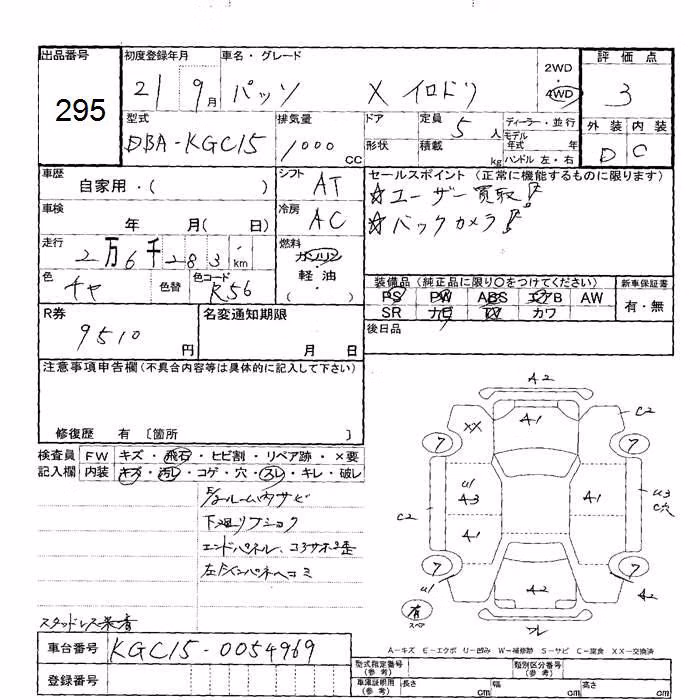 出品番号
295
初度登録年月
21 9月
車名・グレード
パッソ X イロドリ
2WD
・
4WD
評価点
3
外装 内装
D C
型式
DBA-KGC15
排気量
1000 CC
ドア
形状
定員 5 人
積載 kg
ディーラー・並行
モデル
年式 年
ハンドル 左・右
車歴
自家用・( )
シフト
AT
セールスポイント (正常に機能するものに限ります)
☆ユーザー買取!
☆バックカメラ!
車検
年 月( 日)
冷房
AC
走行
2万6千283 km
燃料
ガソリン
・
軽・油
( )
色
チャ
色替
色コード
R56
装備品 (純正品に限り○をつけてください)
PS PW ABS エアB AW
SR ナビ TV カワ
新車保証書
有・無
R券
9510 円
名変通知期限
月 日
後日品
注意事項申告欄(不具合内容等は具体的に記入して下さい)
修復歴 有 〔箇所 〕
検査員
記入欄
FW キズ・飛石・ヒビ割・リペア跡・×要
内装 キズ・汚レ・コゲ・穴・スレ・キレ・破レ
下廻リ
エンドパネル、コアサポ歪
スタッドレス
車台番号
KGC15-0054969
登録番号
A2
A1
XX
C2
7
7
U1
A3
A1
A1
U3
C穴
C2
7
7
A2
A2
有
スペア
A-キズ E-エクボ U-凹み W-補修跡 S-サビ C-腐食 XX-交換済
型式指定番号
(参考)
類別区分番号
(参考)
車庫証明用
(参考)
長さ cm
幅 cm
高さ cm